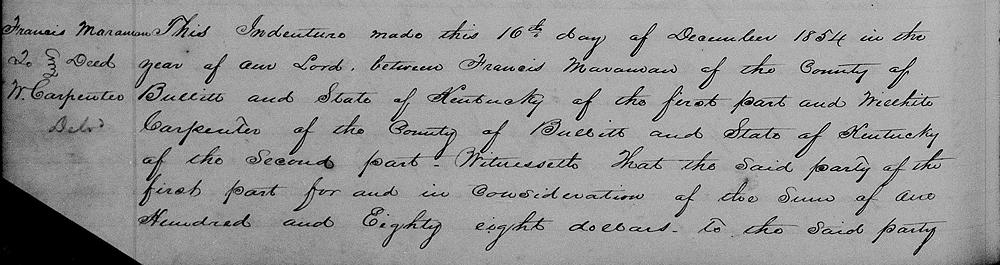 Francis Maraman
To Deed
W. Carpenter
Delvd
This Indenture made this 16th day of December 1854 in the
year of our Lord. between Francis Maraman of the County of
Bullitt and State of Kentucky of the first part and Willhite
Carpenter of the County of Bullitt and State of Kentucky
of the Second part - Witnesseth That the said party of the
first part for and in Consideration of the Sum of One
Hundred and Eighty eight dollars - To the said party